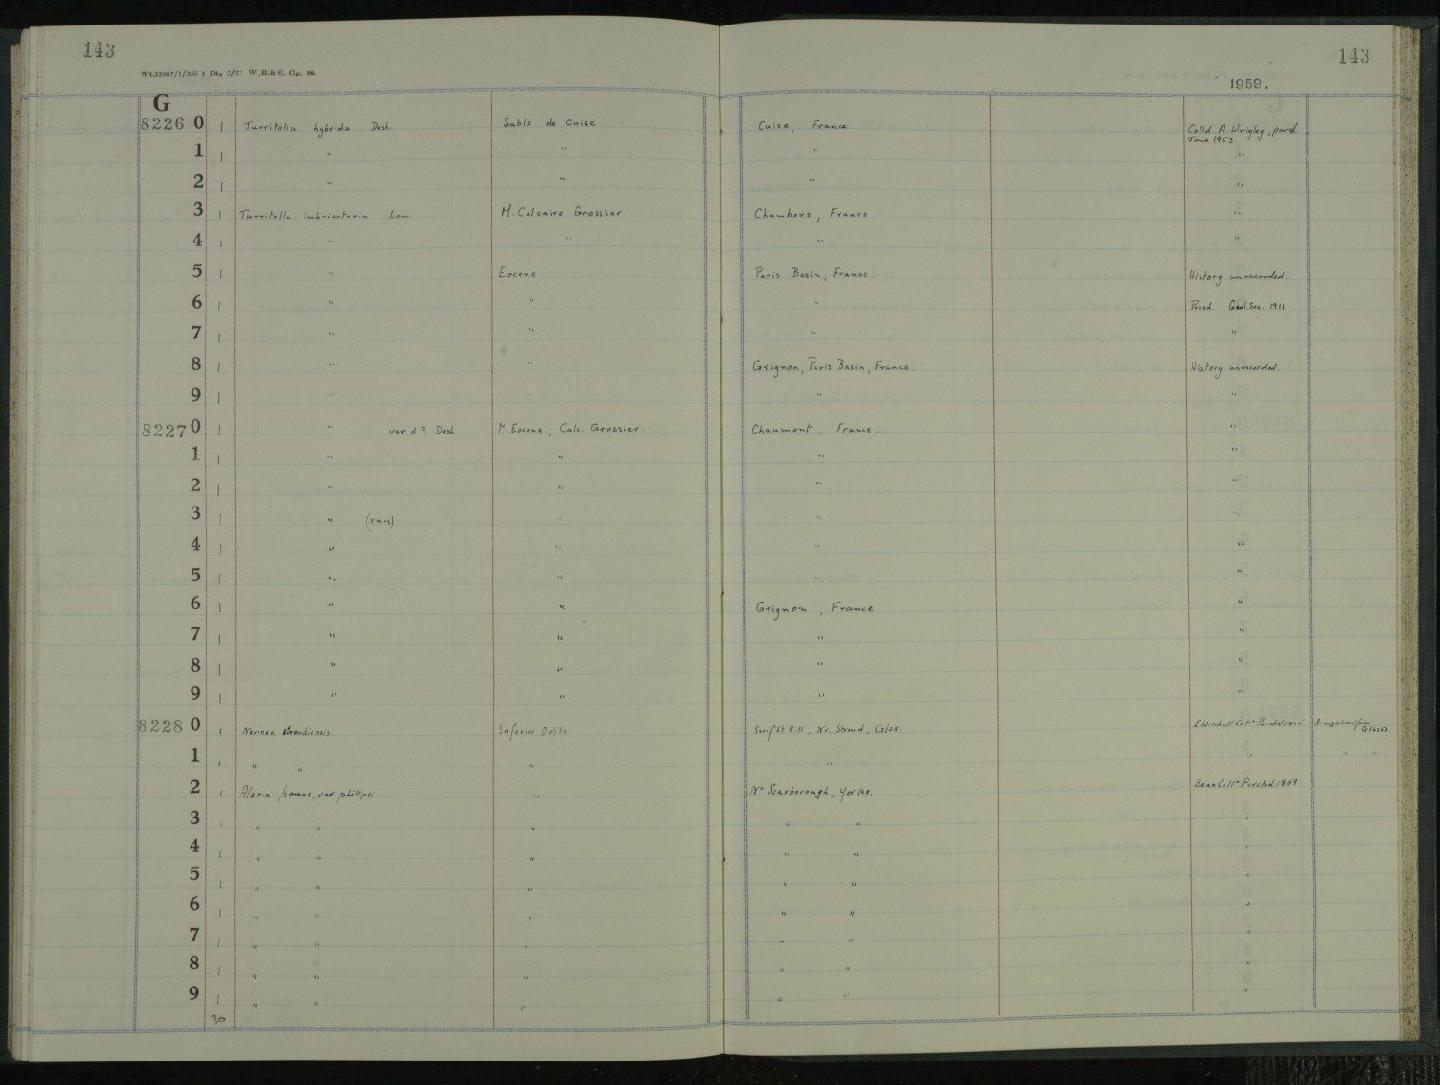 143
143
Wt.33967/1/335 1 Dks 2/57 W.H.&S. Gp.
1959.
G
8226 0 1 Turritella hybrida Desh. Sable de Cuise Cuise, France Col'd. A. Wrigley, purch. June 1953.
1 1 " " " "
2 1 " " " "
3 1 Turritella imbricataria Lam M. Calcaire Grossier Chambors, France "
4 1 " " " "
5 1 " Eocene Paris Basin, France. History unrecorded.
6 1 " " " Presd. Geol. Soc. 1911
7 1 " " " "
8 1 " " Grignon, Paris Basin, France. History unrecorded.
9 1 " " " "
8227 0 1 " var d? Desh M. Eocene, Calc. Grossier. Chaumont, France. "
1 1 " " " "
2 1 " " " "
3 1 " (vars) " " "
4 1 " " " "
5 1 " " " "
6 1 " " Grignon, France "
7 1 " " " "
8 1 " " " "
9 1 " " " "
8228 0 1 Nerinea stroudiensis Inferior Oolite Swift's Hill, Nr. Stroud, Glos. E. Witchell Colln
1 1 " " " " " " "
2 1 Alaria hamus, var phillipsi " Nr Scarborough, Yorks. Bean Colln Purchd. 1859
3 1 " " " " " "
4 1 " " " " " "
5 1 " " " " " "
6 1 " " " " " "
7 1 " " " " " "
8 1 " " " " " "
9 1 " " " " " "
30